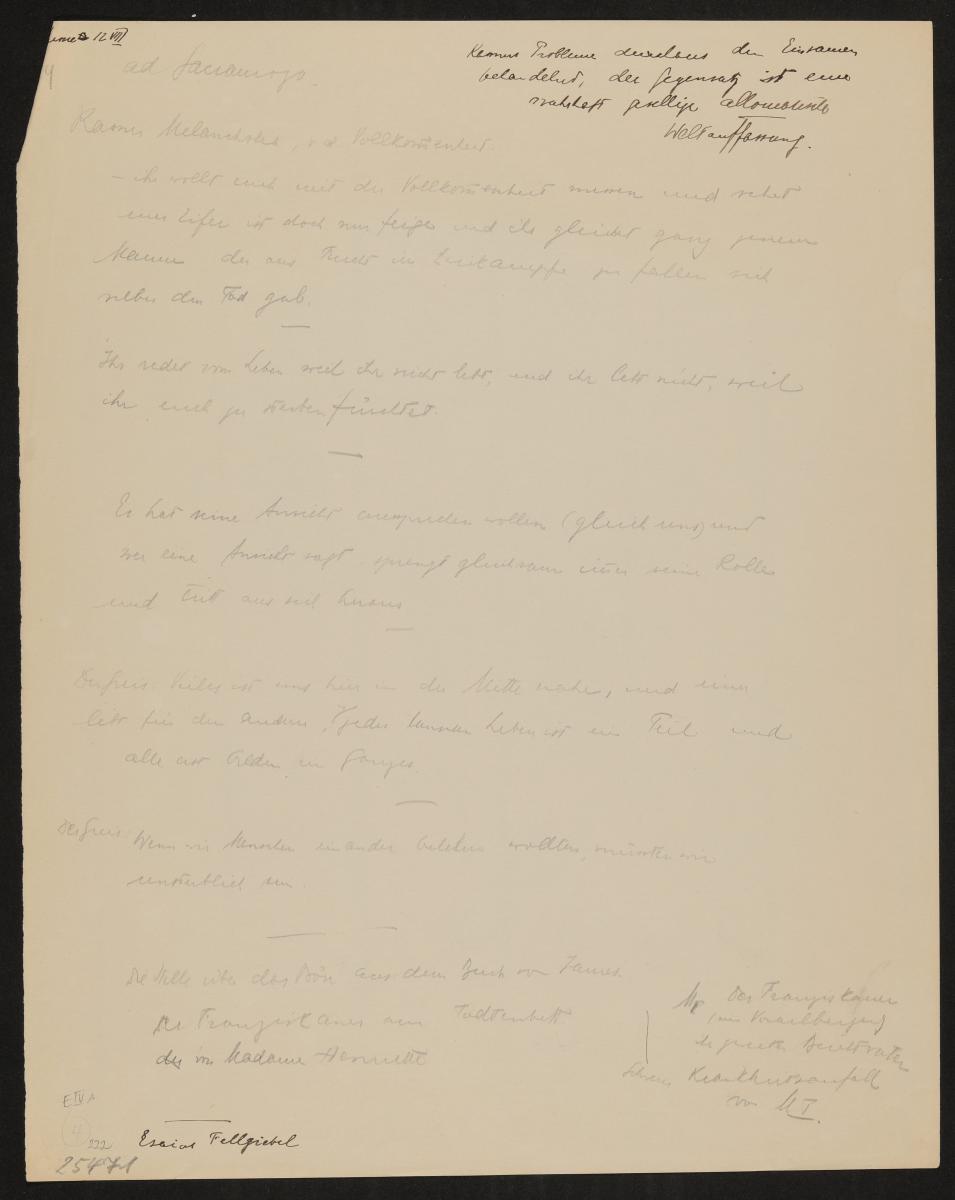 12 VII
ad Sacramozo.
Keines Probleme durchaus der Einsamen
behandelnd, der Gegensatz ist eine
wahrhaft gesellige allomatische
Weltauffassung.
Melancholie, Vollkommenheit.
– ihr wollt euch mit der Vollkommenheit messen und sehet
euer Eifer ist doch nur feige und ihr gleichet ganz jenem
Mann der aus Furcht im Zweikampfe zu fallen sich
selber den Tod gab.
Ihr redet vom Leben weil ihr nicht lebt, und ihr lebt nicht, weil
ihr euch zu sterben fürchtet.
Er hat seine Ansicht aussprechen wollen (gleich uns) und
wer eine Ansicht sagt sprengt gleichsam immer seine Rolle
und tritt aus sich heraus
Der Greis. Vieles ist uns hier in der Mitte nahe, und einer
lebt für den andern, jedes Leben ist ein Teil und
alle erst bilden ein Ganzes.
Der Greis: Wenn wir Menschen einander beleben wollten, müssten wir
unsterblich sein.
Die Stelle über das Böse aus dem Buch von James
Der Franziskaner am Todtenbett
der von Madame Henriette
Der Franziskaner
(ein Vorarlberger)
Krankheitsanfall
von M I.
E IV A
4
222
Esaias Fellgiebel
25471